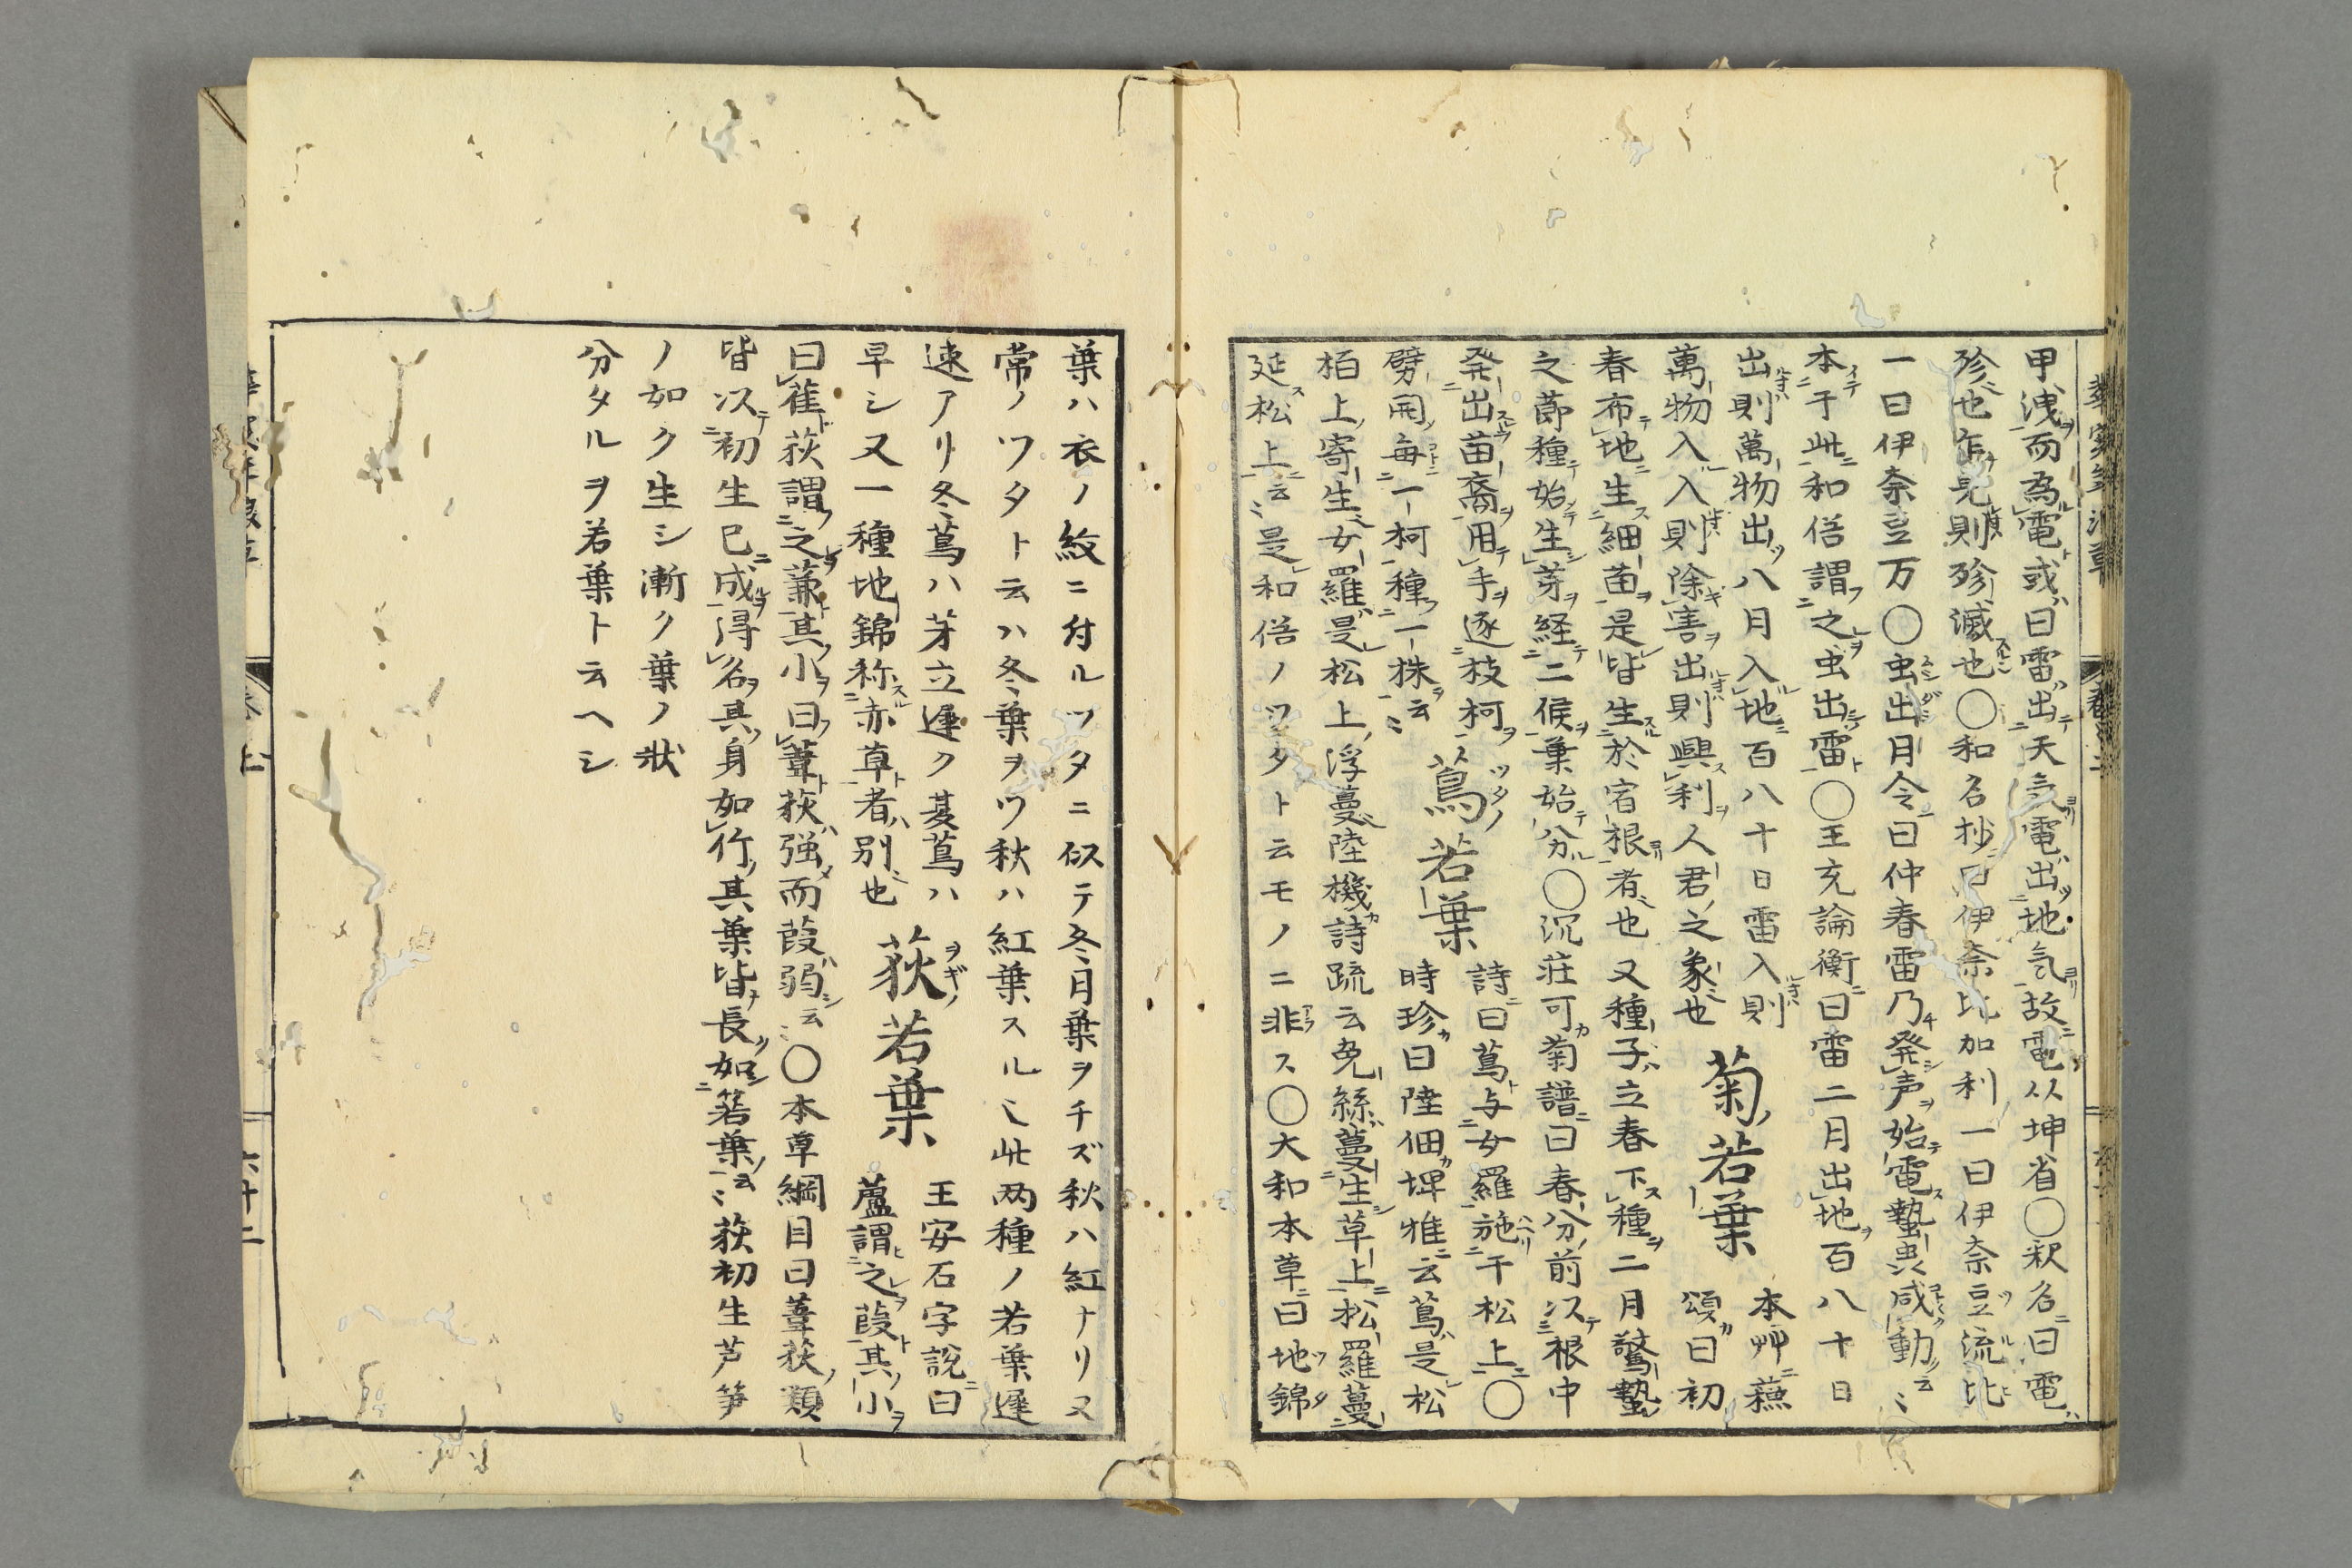 甲洩而為電或曰雷出天気電出地気故電从坤省〇釈名曰電
殄也乍見則殄滅也〇和名抄曰伊奈比加利一曰伊奈豆流比
一曰伊奈豆万〇虫出月令曰仲春雷乃発声始電蟄虫咸動云〻
本于此和俗謂之虫出雷〇王充論衡曰雷二月出地百八十日
出則萬物出八月入地百八十日雷入則
萬物入入則除害出則興利人君之象也
菊若葉
本艸蘓
頌曰初
春布地生細苗是皆生於宿根者也又種子立春下種二月驚蟄
之節種始生芽経二候葉始分〇沉荘可菊譜曰春分前以根中
発出苗裔用手逐枝柯
劈開毎一柯種一株云〻
蔦若葉
詩曰蔦与女羅施于松上〇
時珍曰陸佃埤雅云蔦是松
栢上寄生女羅是松上浮蔓陸機詩疏云免絲蔓生草上松羅蔓
延松上云〻是和俗ノツタト云モノニ非ス〇大和本草曰地錦
葉ハ衣ノ紋ニ付ルツタニ似テ冬月葉ヲチズ秋ハ紅ナリ又
常ノツタト云ハ冬葉ヲツ秋ハ紅葉スル〻此两種ノ若葉遲
速アリ冬蔦ハ芽立遲ク夏蔦ハ
早シ又一種地錦称赤草者別也
荻若葉
王安石字説曰
蘆謂之葭其小
曰雈荻謂之蒹其小曰葦荻强而葭弱云〻〇本草綱目曰葦荻類
皆以初生已成得名其身如竹其葉皆長如箬葉云〻荻初生芦笋
ノ如ク生シ漸ク葉ノ状
分タルヲ若葉ト云ヘシ